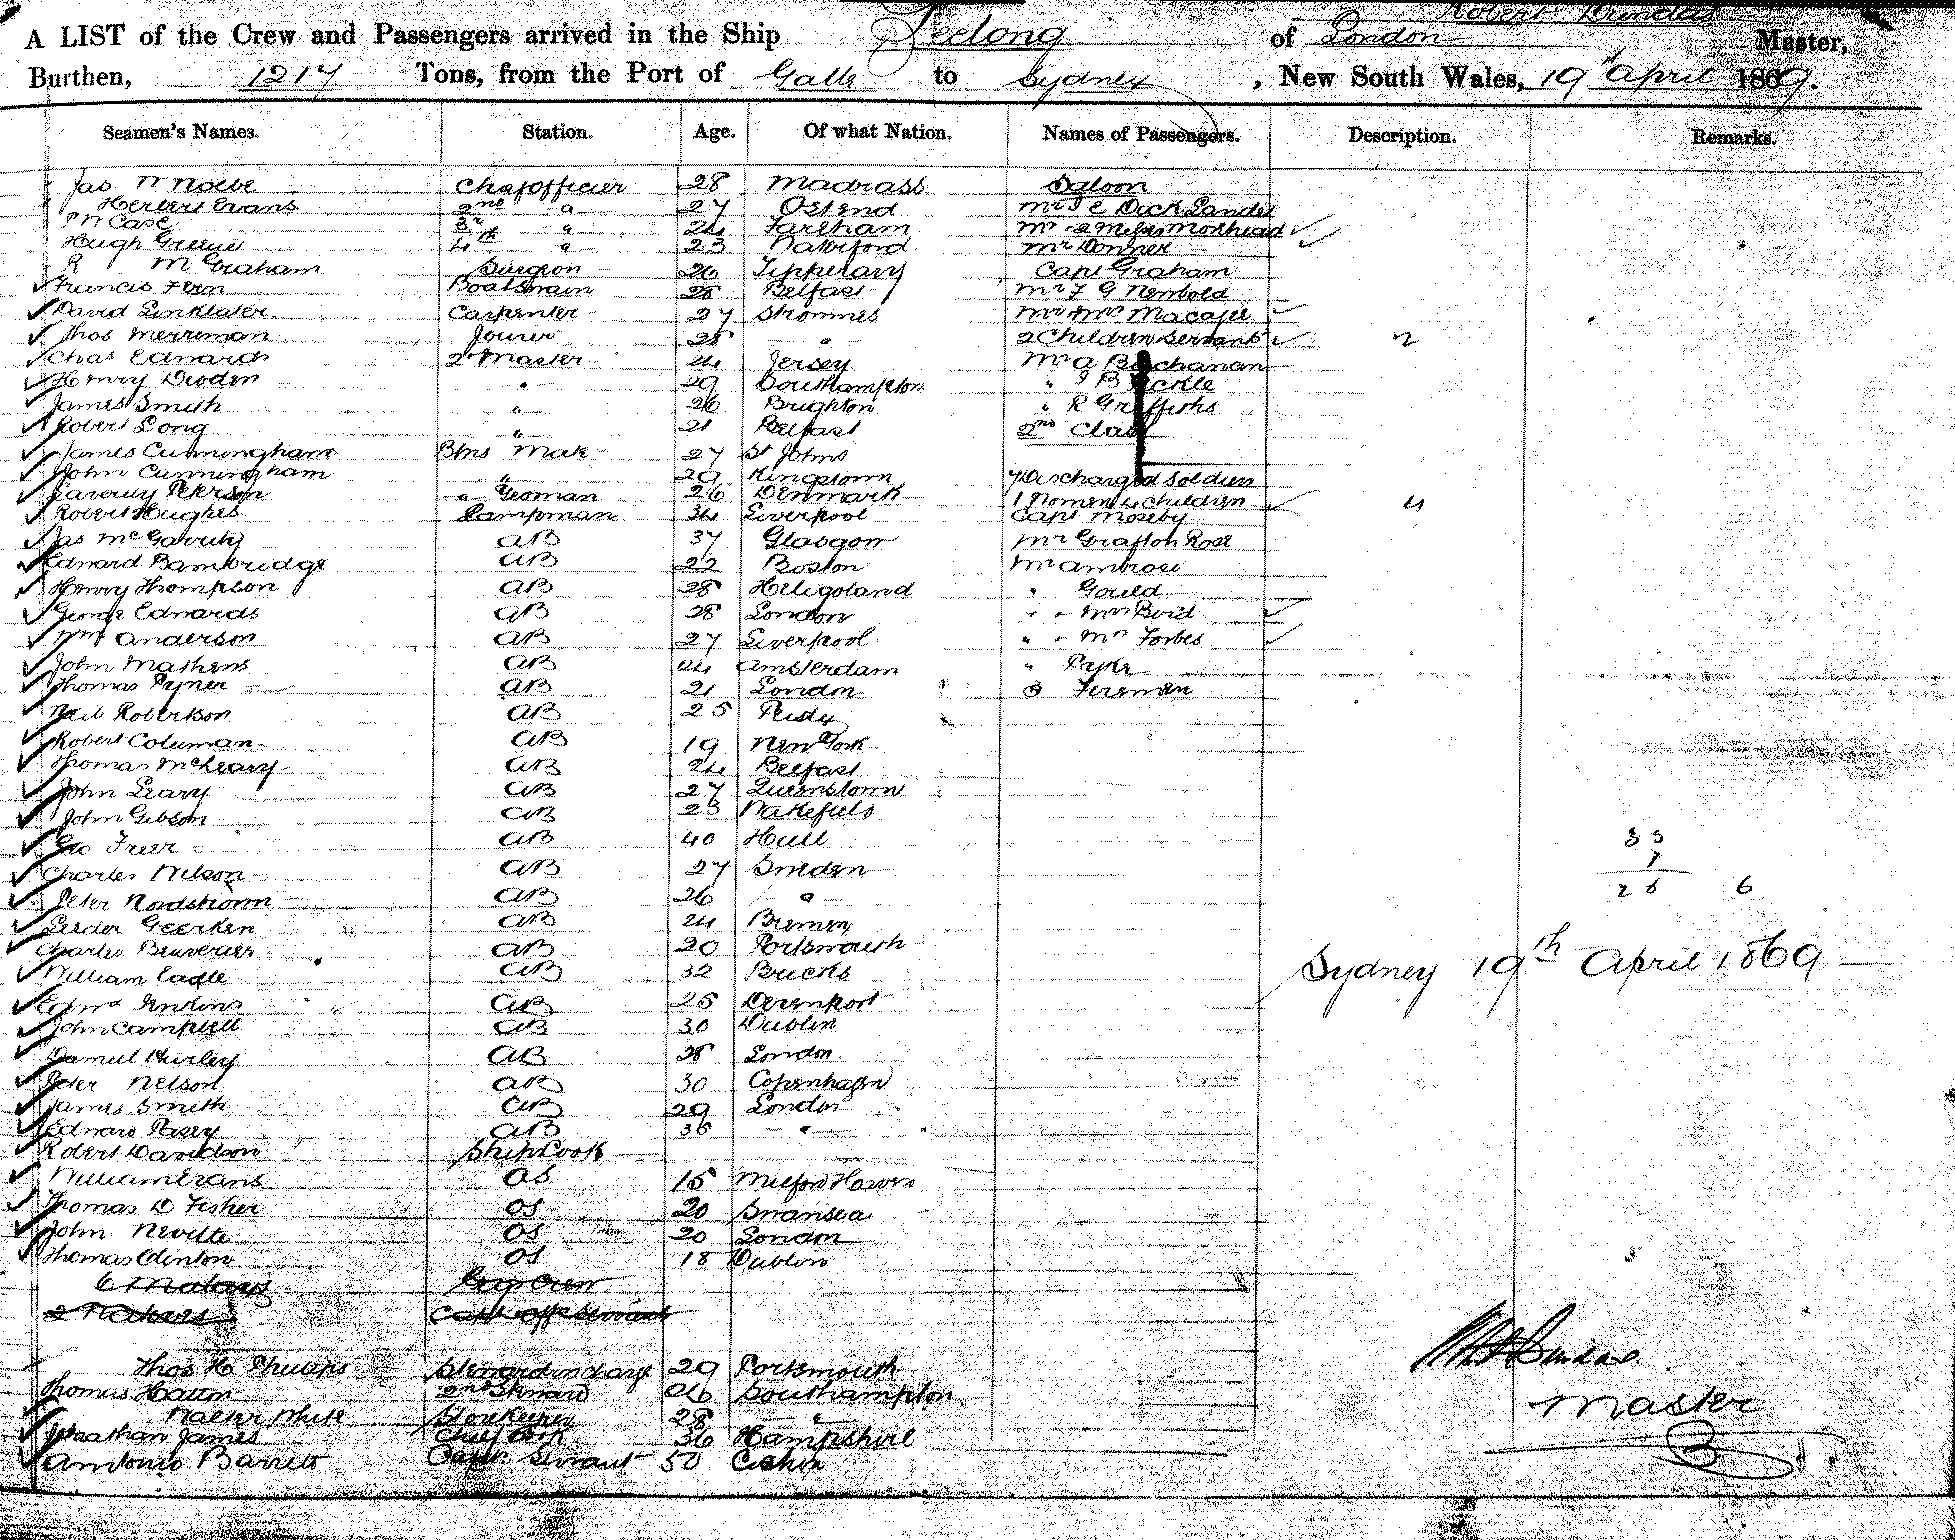 Robert
A LIST of the Crew and Passengers arrived in the Ship Geelong of London Master,
Burthen, 1217 Tons, from the Port of Galle to Sydney, New South Wales, 19th April 1869.
Seamen's Names. Station. Age. Of what Nation. Names of Passengers. Description. Remarks.
Jas 28 Madrass Saloon
Herbert Evans 2nd " 27 Ostend Mr Dick Lander
Case 3r " 24 Fareham Mr Moshead
Hugh Greene 4th " 23
R M Graham Surgeon 26 Tipperary Capt Graham
Francis Fern Boatswain 28 Belfast Mr F G Newbold
David Linklater Carpenter 27 Stromnes Mr & Mrs
Thos Merreman Joiner 28 " 2 Children Servant 2
Chas Edwards 2r Master 24 Jersey Mr A Buchanan
Henry " 29 Southampton "
James Smith " 26 Brighton " R Griffiths
Robert Long " 21 Belfast 2nd Class
James Cunningham Btns Mate 27 St Johns
John Cunningham " 29 Kingstown 7 Discharged Soldiers
Peterson " Yeoman 26 Denmark 1 Women 4 children 4
Robert Hughes Lampman 34 Liverpool Capt Moseby
Jas AB 37 Glasgow Mr Grafton Rose
Edward Bambridge AB 22 Boston Mr Ambrose
Henry Thompson AB 28 Heligoland " Gould
George Edwards AB 28 London " " Mrs
Wm Anderson AB 27 Liverpool " " Mrs Forbes
John Mathews AB 24 Amsterdam "
Thomas AB 21 London 3 Firemen
Neil Robertson AB 25
Robert Columan AB 19 New York
Thomas McLeary AB 24 Belfast
John Leary AB 27 Queenstown
John Gibson AB 23 Wakefield
Geo Freer AB 40 Hull
Charles Nelson AB 27 Sweden
Peter Nordstrom AB 26 " 6
Geerken AB 24 Bremen
Charles AB 20 Portsmouth
William AB 32 Bucks
Sydney 19th April 1869
Edwd Jenkins AB 25 Devenport
John Campbell AB 30 Dublin
Daniel Hurley AB 28 London
Peter Nelson AB 30 Copenhagen
James Smith AB 29 London
Edward AB 36 "
Robert Davidson Ship Cook
William Evans OS 15 Milford Haven
Thomas D Fisher OS 20 Swansea
John Neville OS 20 London
Thomas Clinton OS 18 Dublin
6 Malays Crew
2
Thos H Steward in charge 29 Portsmouth
Thomas Hatton 2nd Steward 26 Southampton
Walter White Storekeeper 28 "
Master
Jonathan James Chief Cook 36 Hampshire
Antonio Barrett Capts Servant 50